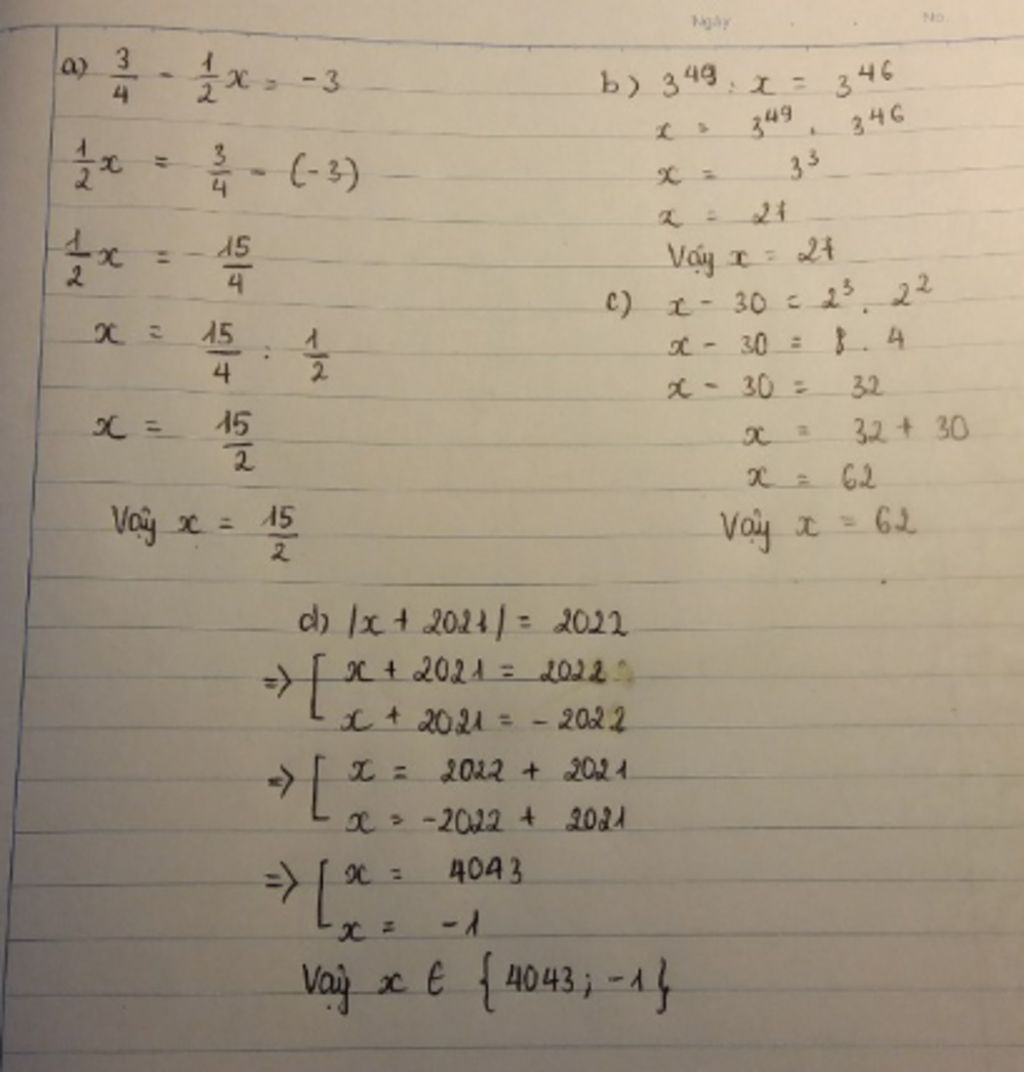 Ngày No.
a) 3/4 - 1/2 x = -3
1/2 x = 3/4 - (-3)
1/2 x = 15/4
x = 15/4 : 1/2
x = 15/2
Vậy x = 15/2
b) 3^49 : x = 3^46
x = 3^49 : 3^46
x = 3^3
x = 27
Vậy x = 27
c) x - 30 = 2^3 . 2^2
x - 30 = 8 . 4
x - 30 = 32
x = 32 + 30
x = 62
Vậy x = 62
d) |x + 2021| = 2022
=> [ x + 2021 = 2022
x + 2021 = -2022
=> [ x = 2022 + 2021
x = -2022 + 2021
=> [ x = 4043
x = -1
Vậy x ∈ {4043; -1}